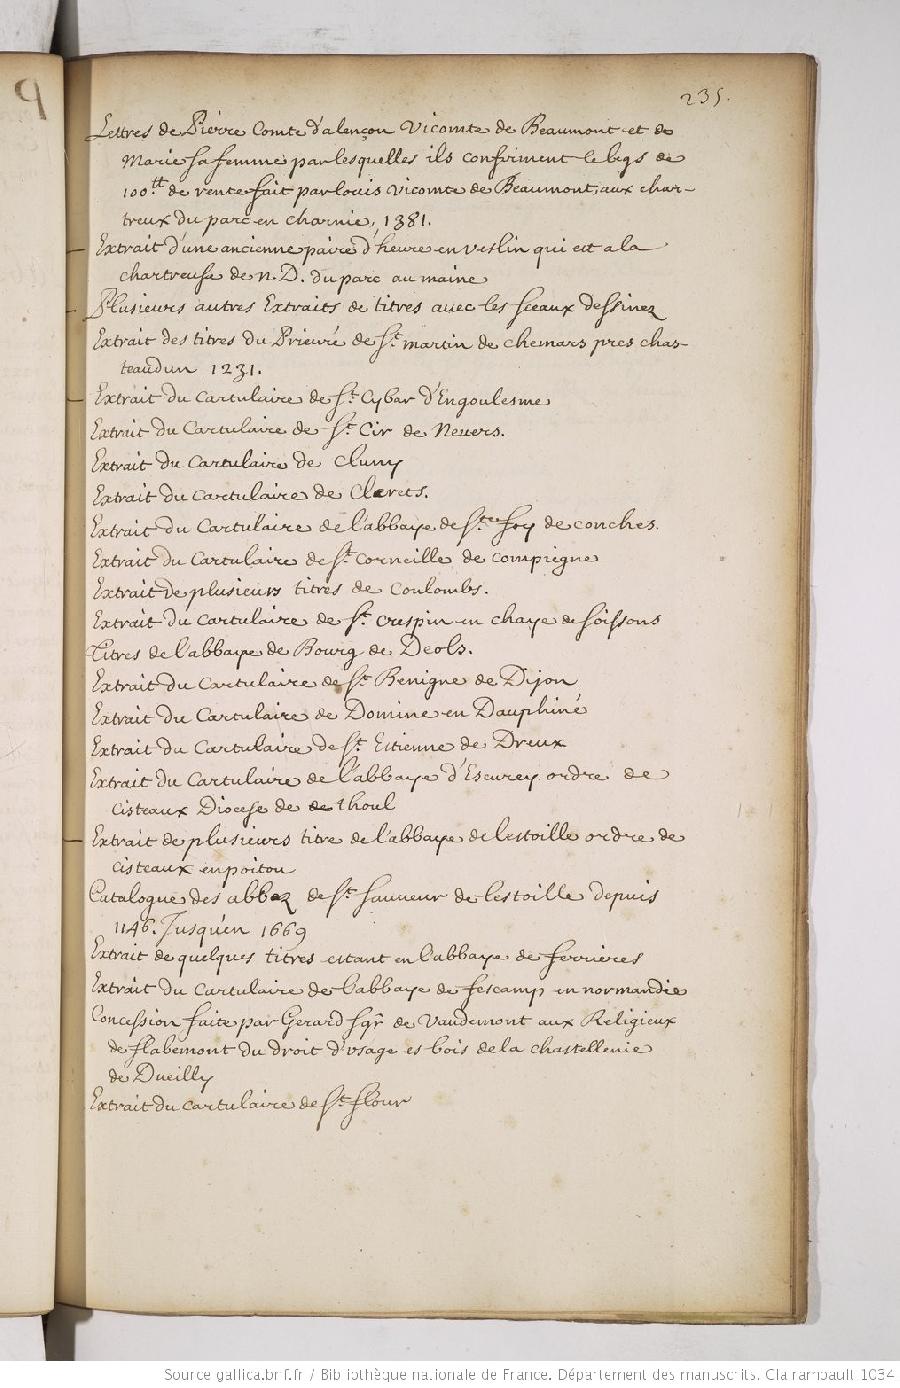 235.
Lettres de Pierre Comte d'alençon Vicomte de Beaumont et de
Marie sa femme par lesquelles ils confirment le legs de
100.tt de rente fait par louis vicomte de Beaumont, aux char-
treux du parc en charnie, 1381.
Extrait d'une ancienne paire d'heure en veslin qui est a la
chartreuse de n. D. du parc au maine
Plusieurs autres Extraits de titres avec les sceaux dessinez
Extrait des titres du Prieuré de St. martin de chemars pres chas-
teaudun 1231.
Extrait du Cartulaire de St. Cybar d'Engoulesme
Extrait du Cartulaire de St. Cir de Nevers.
Extrait du Cartulaire de Cluny
Extrait du Cartulaire de Clerets.
Extrait du Cartulaire de l'abbaye de Ste. foy de conches.
Extrait du Cartulaire de St. Corneille de compiegne
Extrait de plusieurs titres de Coulombs.
Extrait du Cartulaire de St. crespin en chaye de soissons
Titres de l'abbaye de Bourg de Deols.
Extrait du Cartulaire de St. Benigne de Dijon
Extrait du Cartulaire de Domine en Dauphiné
Extrait du Cartulaire de St. Estienne de Dreux
Extrait du Cartulaire de l'abbaye d'Escurey ordre de
cisteaux Diocese de de thoul
Extrait de plusieurs titre de l'abbaye de lestoille ordre de
cisteaux en poitou
Catalogue des abbez de St. Sauveur de lestoille depuis
1146. Jusqu'en 1669
Extrait de quelques titres estant en l'abbaye de ferrieres
Extrait du Cartulaire de l'abbaye de fescamp en normandie
Concession faite par Gerard sgr de Vaudemont aux Religieux
de flabemont du droit d'usage es bois de la chastellenie
de Dueilly
Extrait du cartulaire de St. flour
Source gallica.bnf.fr / Bibliothèque nationale de France. Département des manuscrits. Clairambault 1034